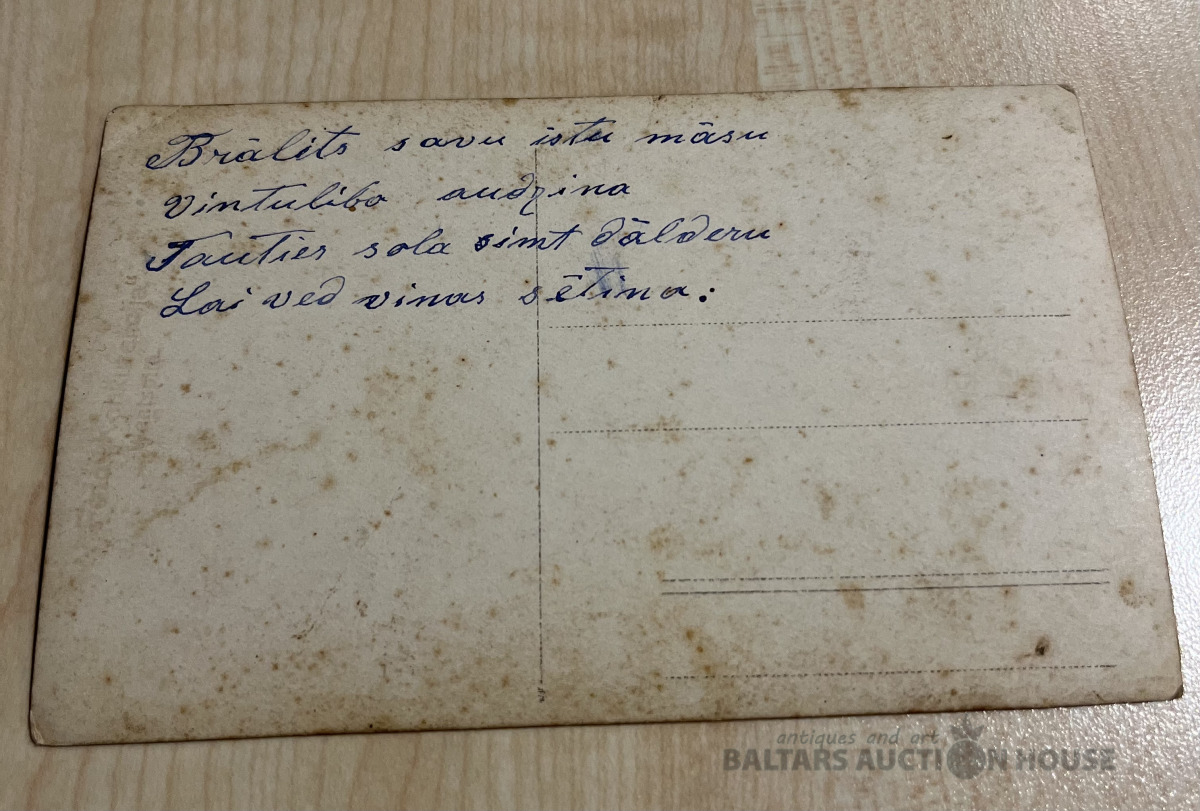 Brālits savu istu māsu
vintulība audzina
Tauties sola simt dālderu
Lai ved viņas sētina.
antiques and art
BALTARS AUCTION HOUSE